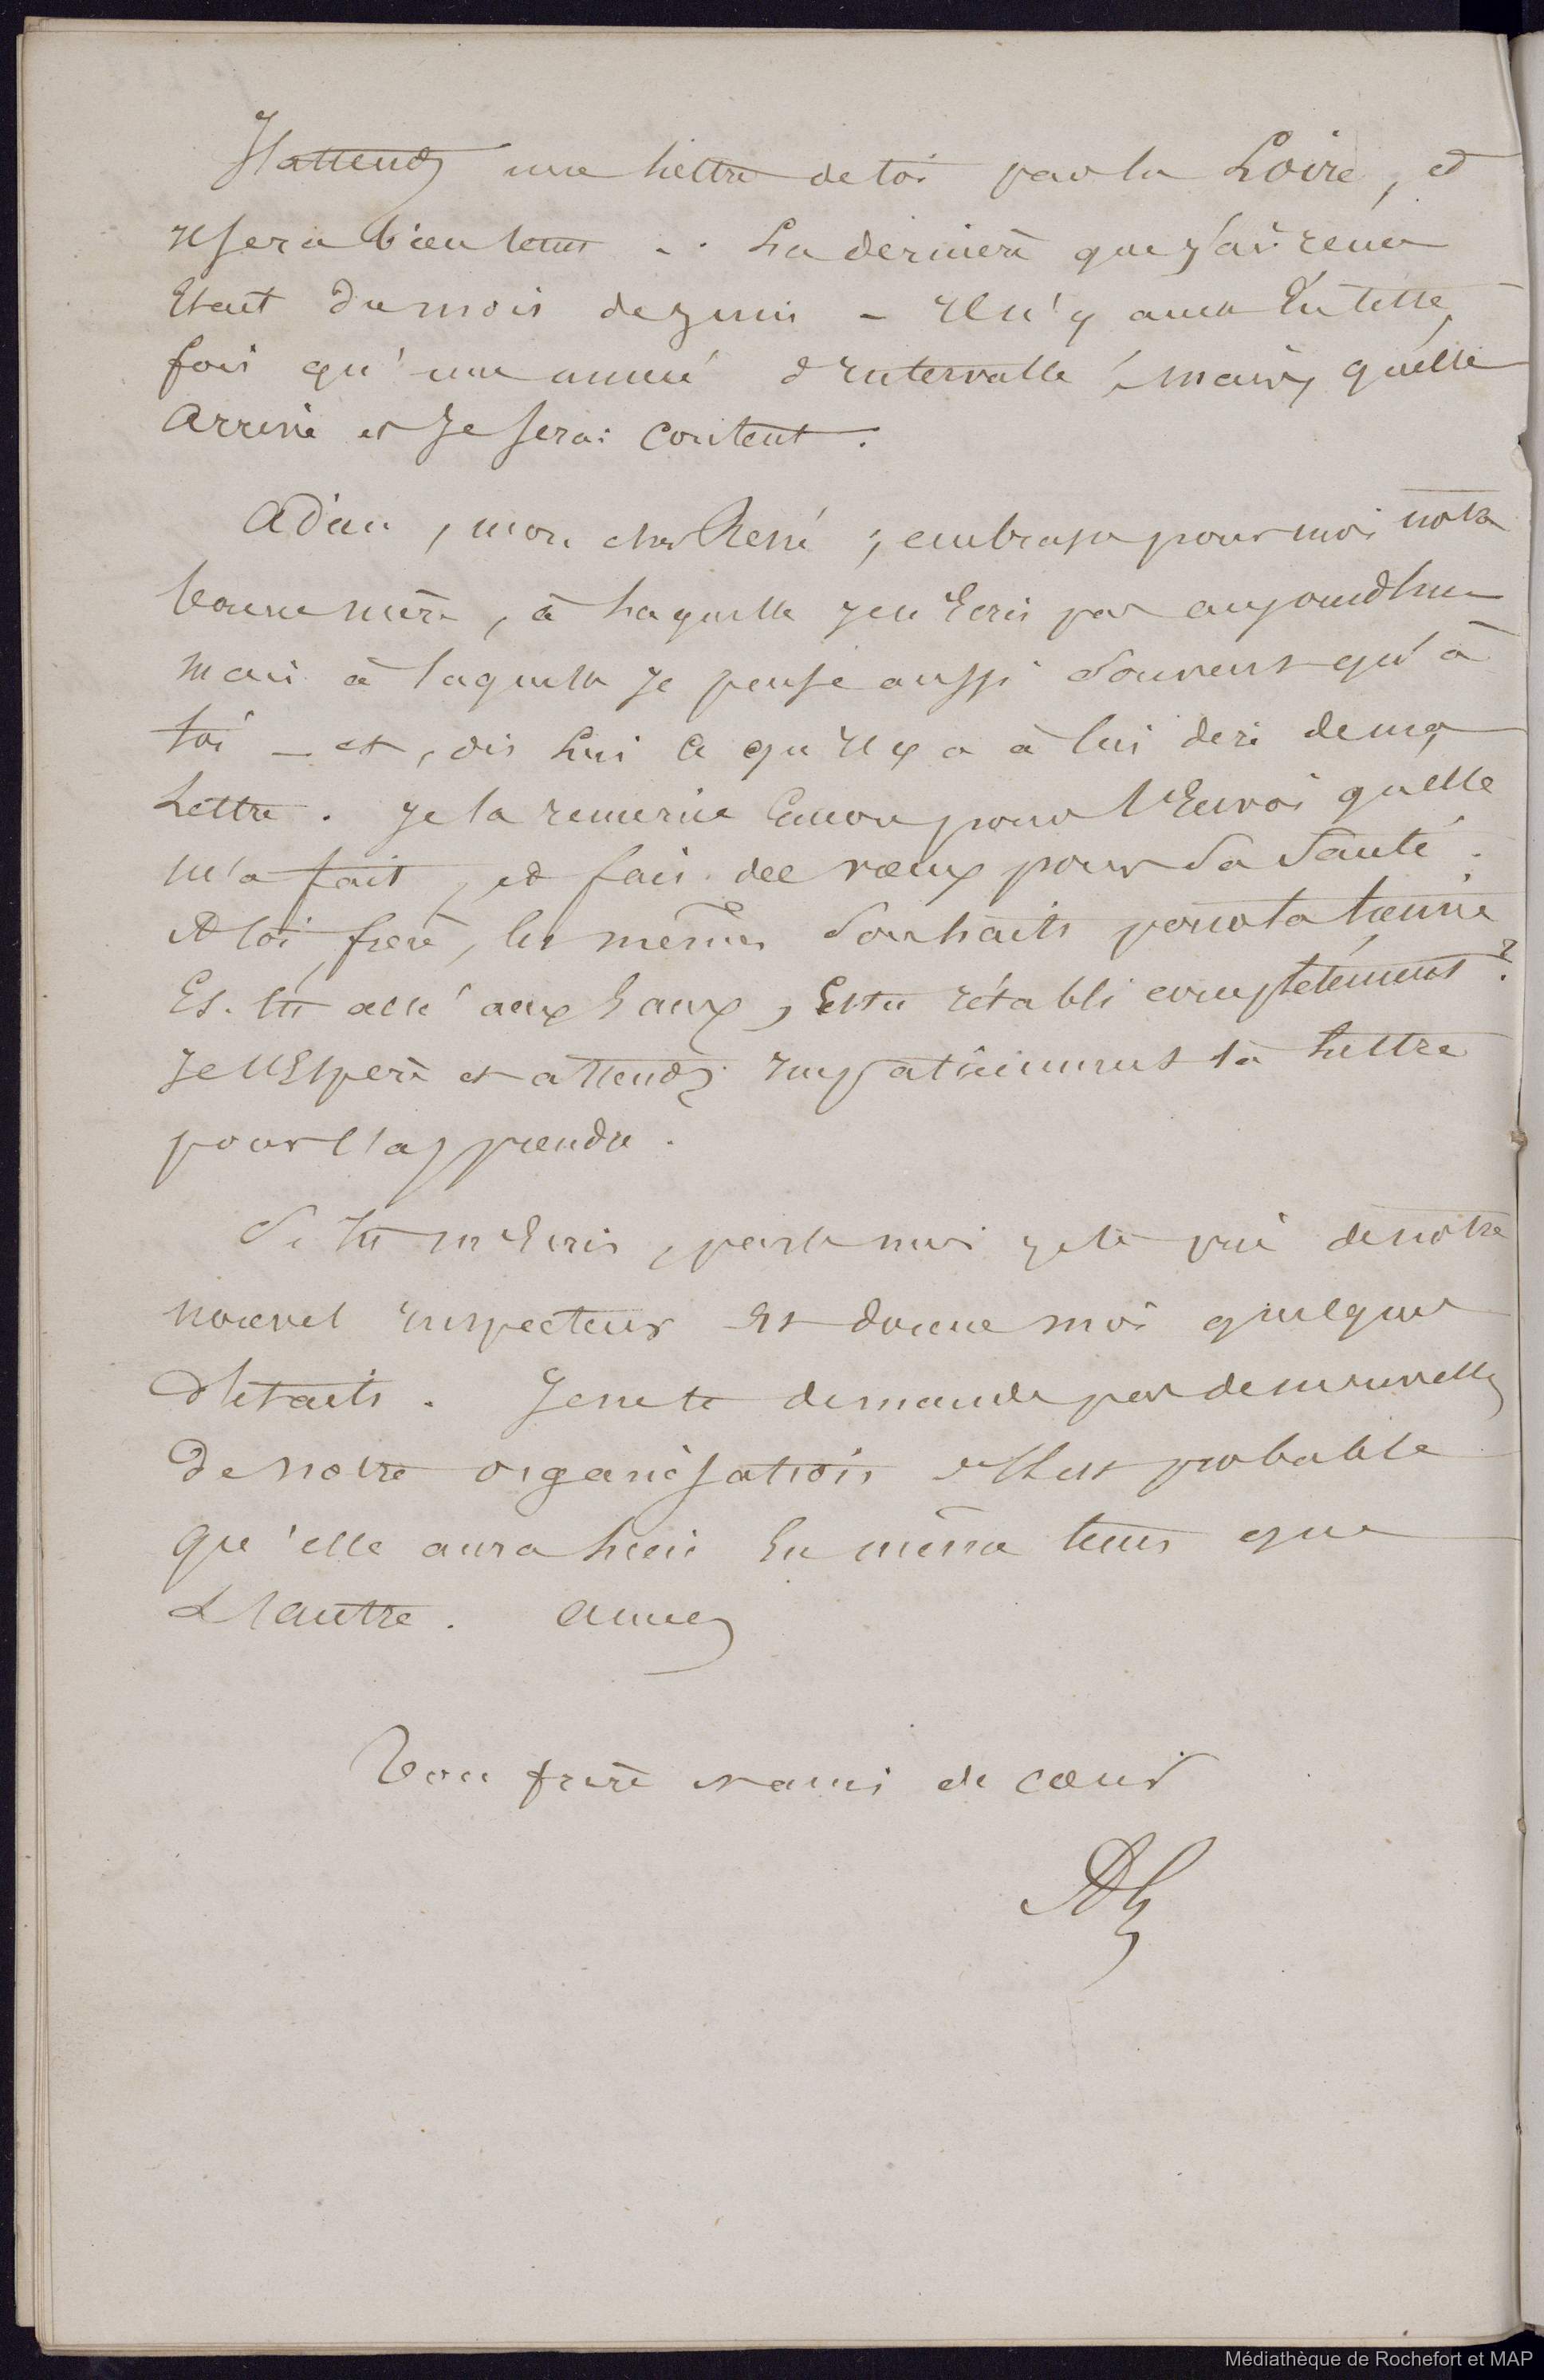 J'attends une lettre de toi par la Loire, et
il sera bien tems -. La dernière que j'ai reçue
Etait du mois de juin - Il n'y aura cette
fois qu'une année d'intervalle, mais, qu'elle
Arrive et je serai content.
Adieu, mon cher René ; embrasse pour moi notre
bonne mère, à laquelle je n'écris pas aujourd'hui
mais à laquelle je pense aussi souvent qu'à
toi - et, dis lui ce qu'il y a à lui dire de ma
lettre. Je la remercie encore pour l'Envoi qu'elle
m'a fait, et fais des vœux pour sa santé.
A toi, frère, les mêmes souhaits pour la tienne
Es-tu allé aux Eaux, Es-tu rétabli complètement ?
Je l'Espère et attends impatiemment ta lettre
pour l'apprendre.
Si tu m'Ecris, parle moi je te prie de notre
nouvel inspecteur et donne moi quelques
détails. Je ne te demande pas de nouvelles
de notre organisation il est probable
qu'elle aura lieu En même tems que
L'autre.
bon frère et ami de cœur